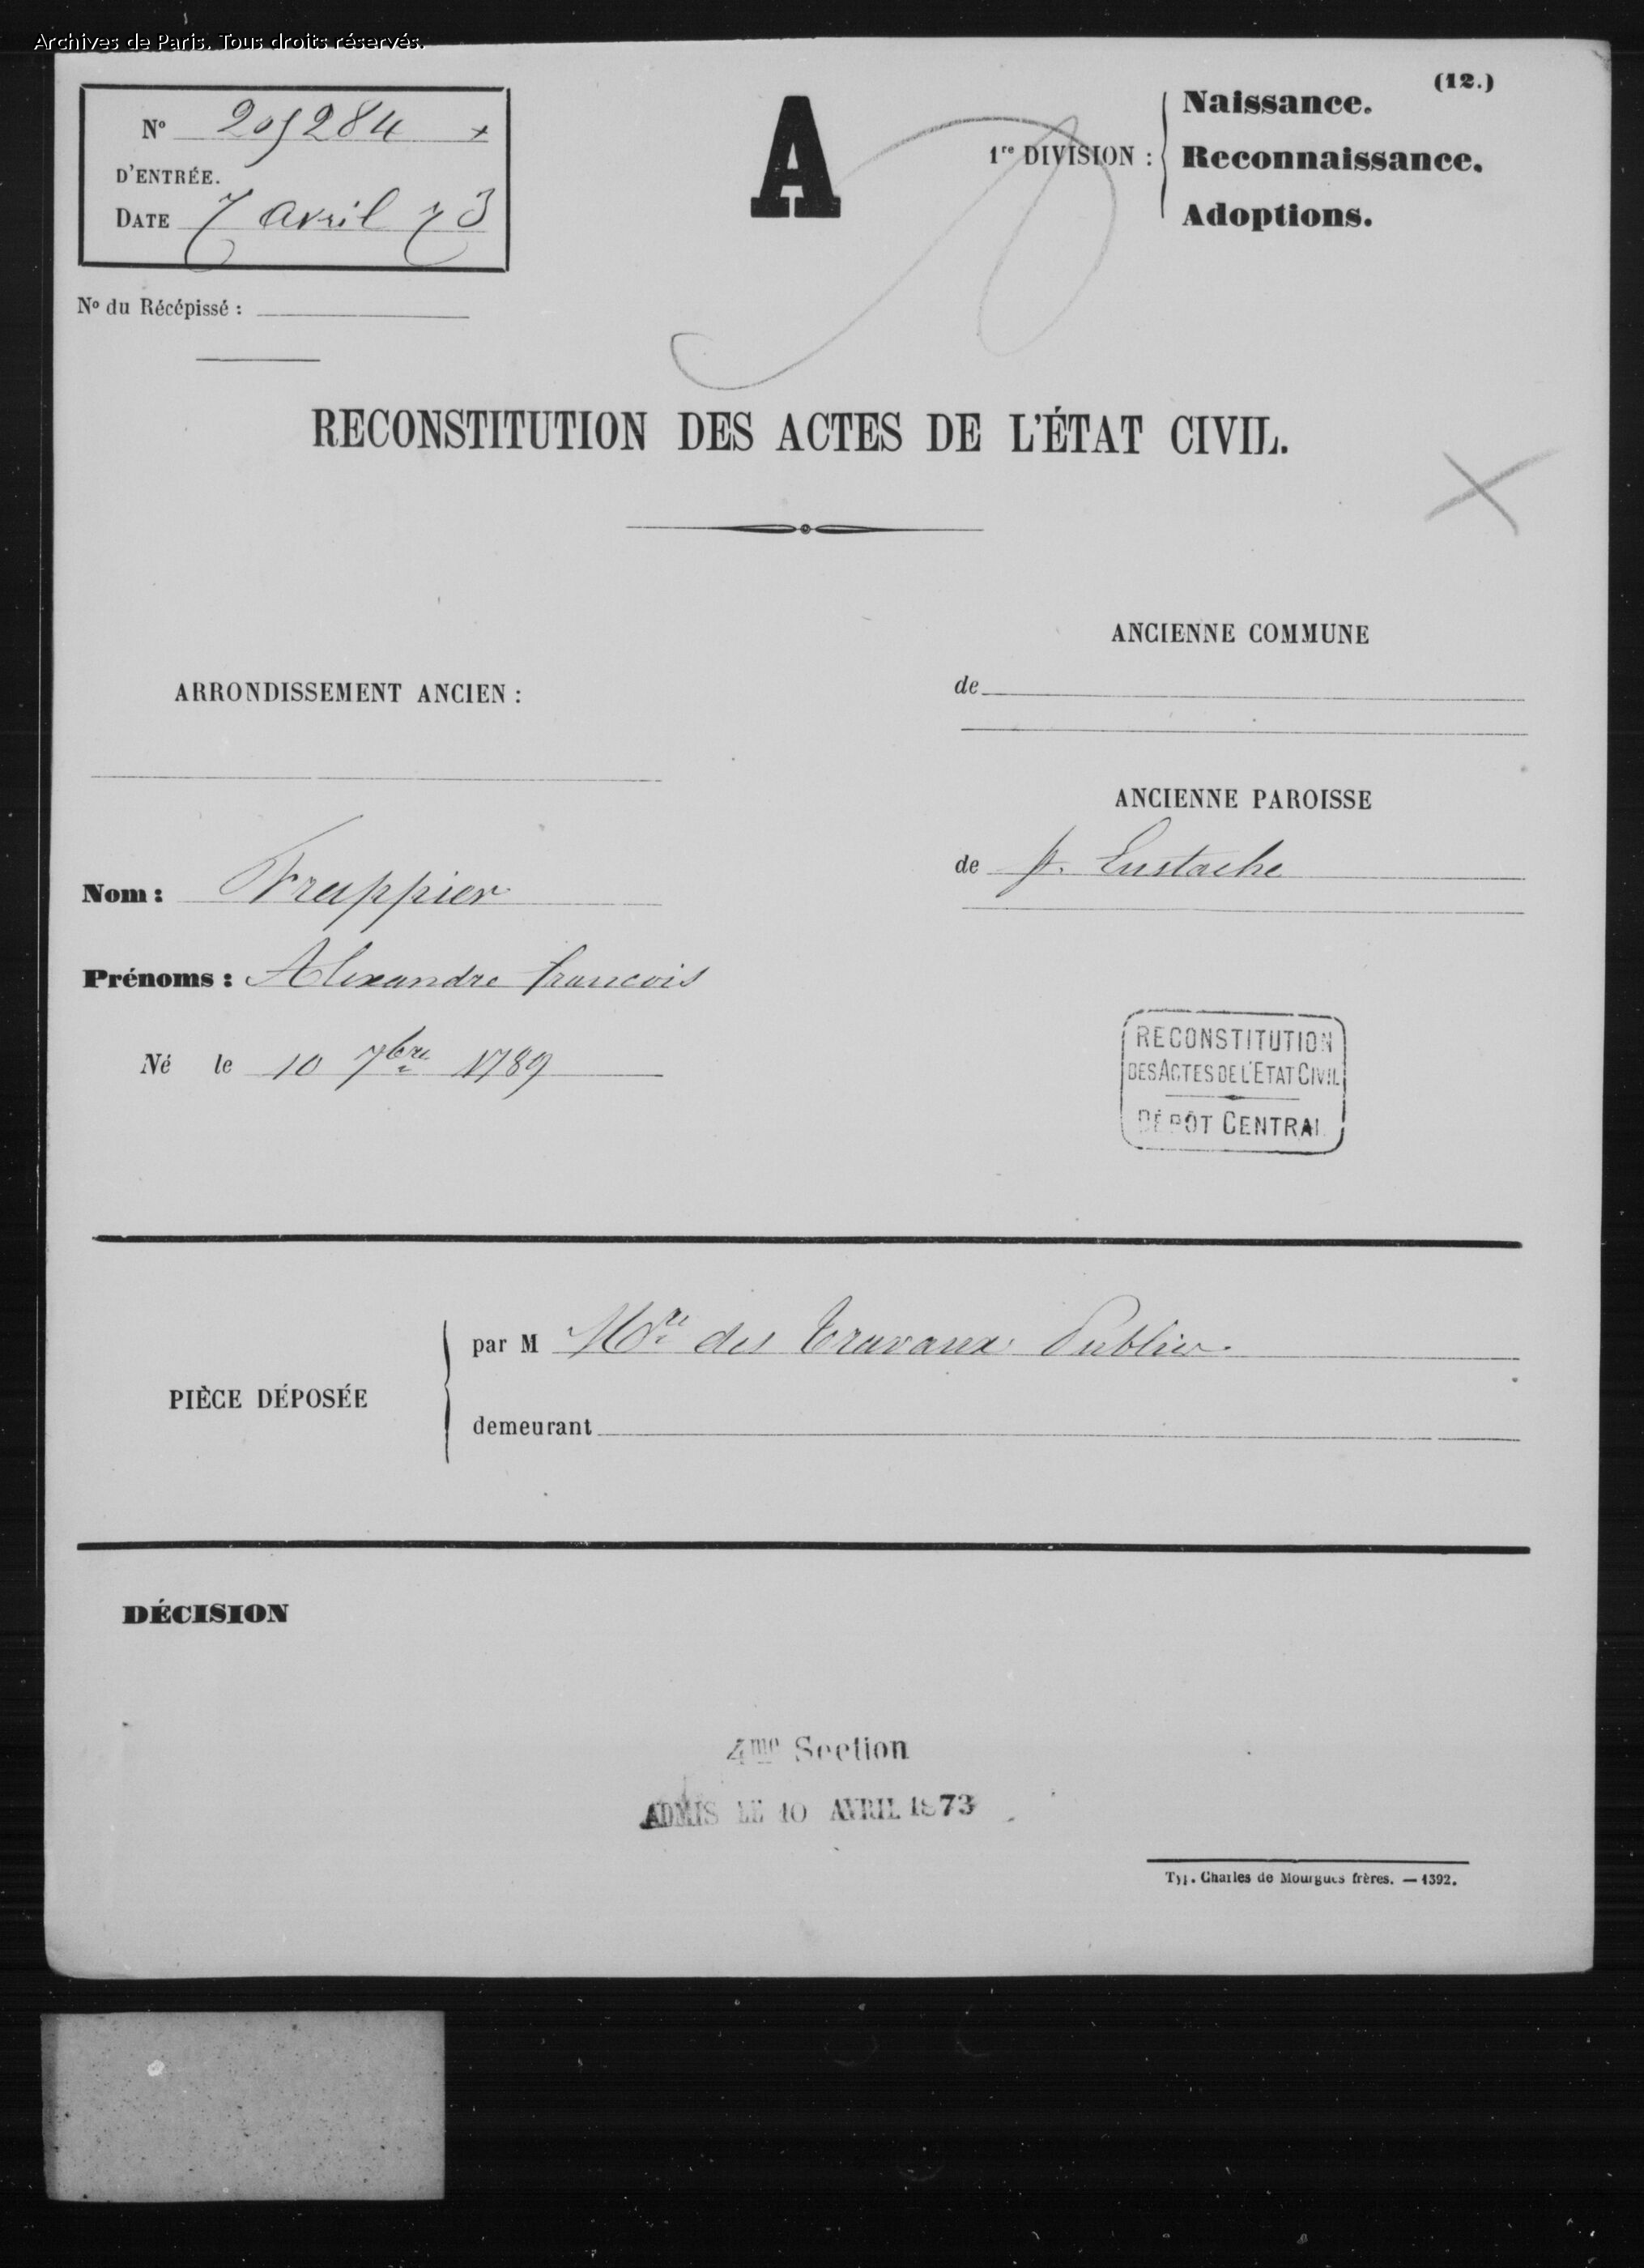 Archives de Paris. Tous droits réservés.
(12.)
Nº 205284 +
D'ENTRÉE.
DATE 7 avril 73
Nº du Récépissé :
A
1re DIVISION :
Naissance.
Reconnaissance.
Adoptions.
RECONSTITUTION DES ACTES DE L'ÉTAT CIVIL.
ANCIENNE COMMUNE
de
ARRONDISSEMENT ANCIEN :
ANCIENNE PAROISSE
de St. Eustache
Nom : Frappier
Prénoms : Alexandre francois
Né le 10 7bre 1789
RECONSTITUTION
DES ACTES DE L'ETAT CIVIL
DÉPÔT CENTRAL
par M Mre des travaux Publics.
PIÈCE DÉPOSÉE
demeurant
DÉCISION
4me Section
ADMIS LE 10 AVRIL 1873
Typ. Charles de Mourgues frères. — 1392.